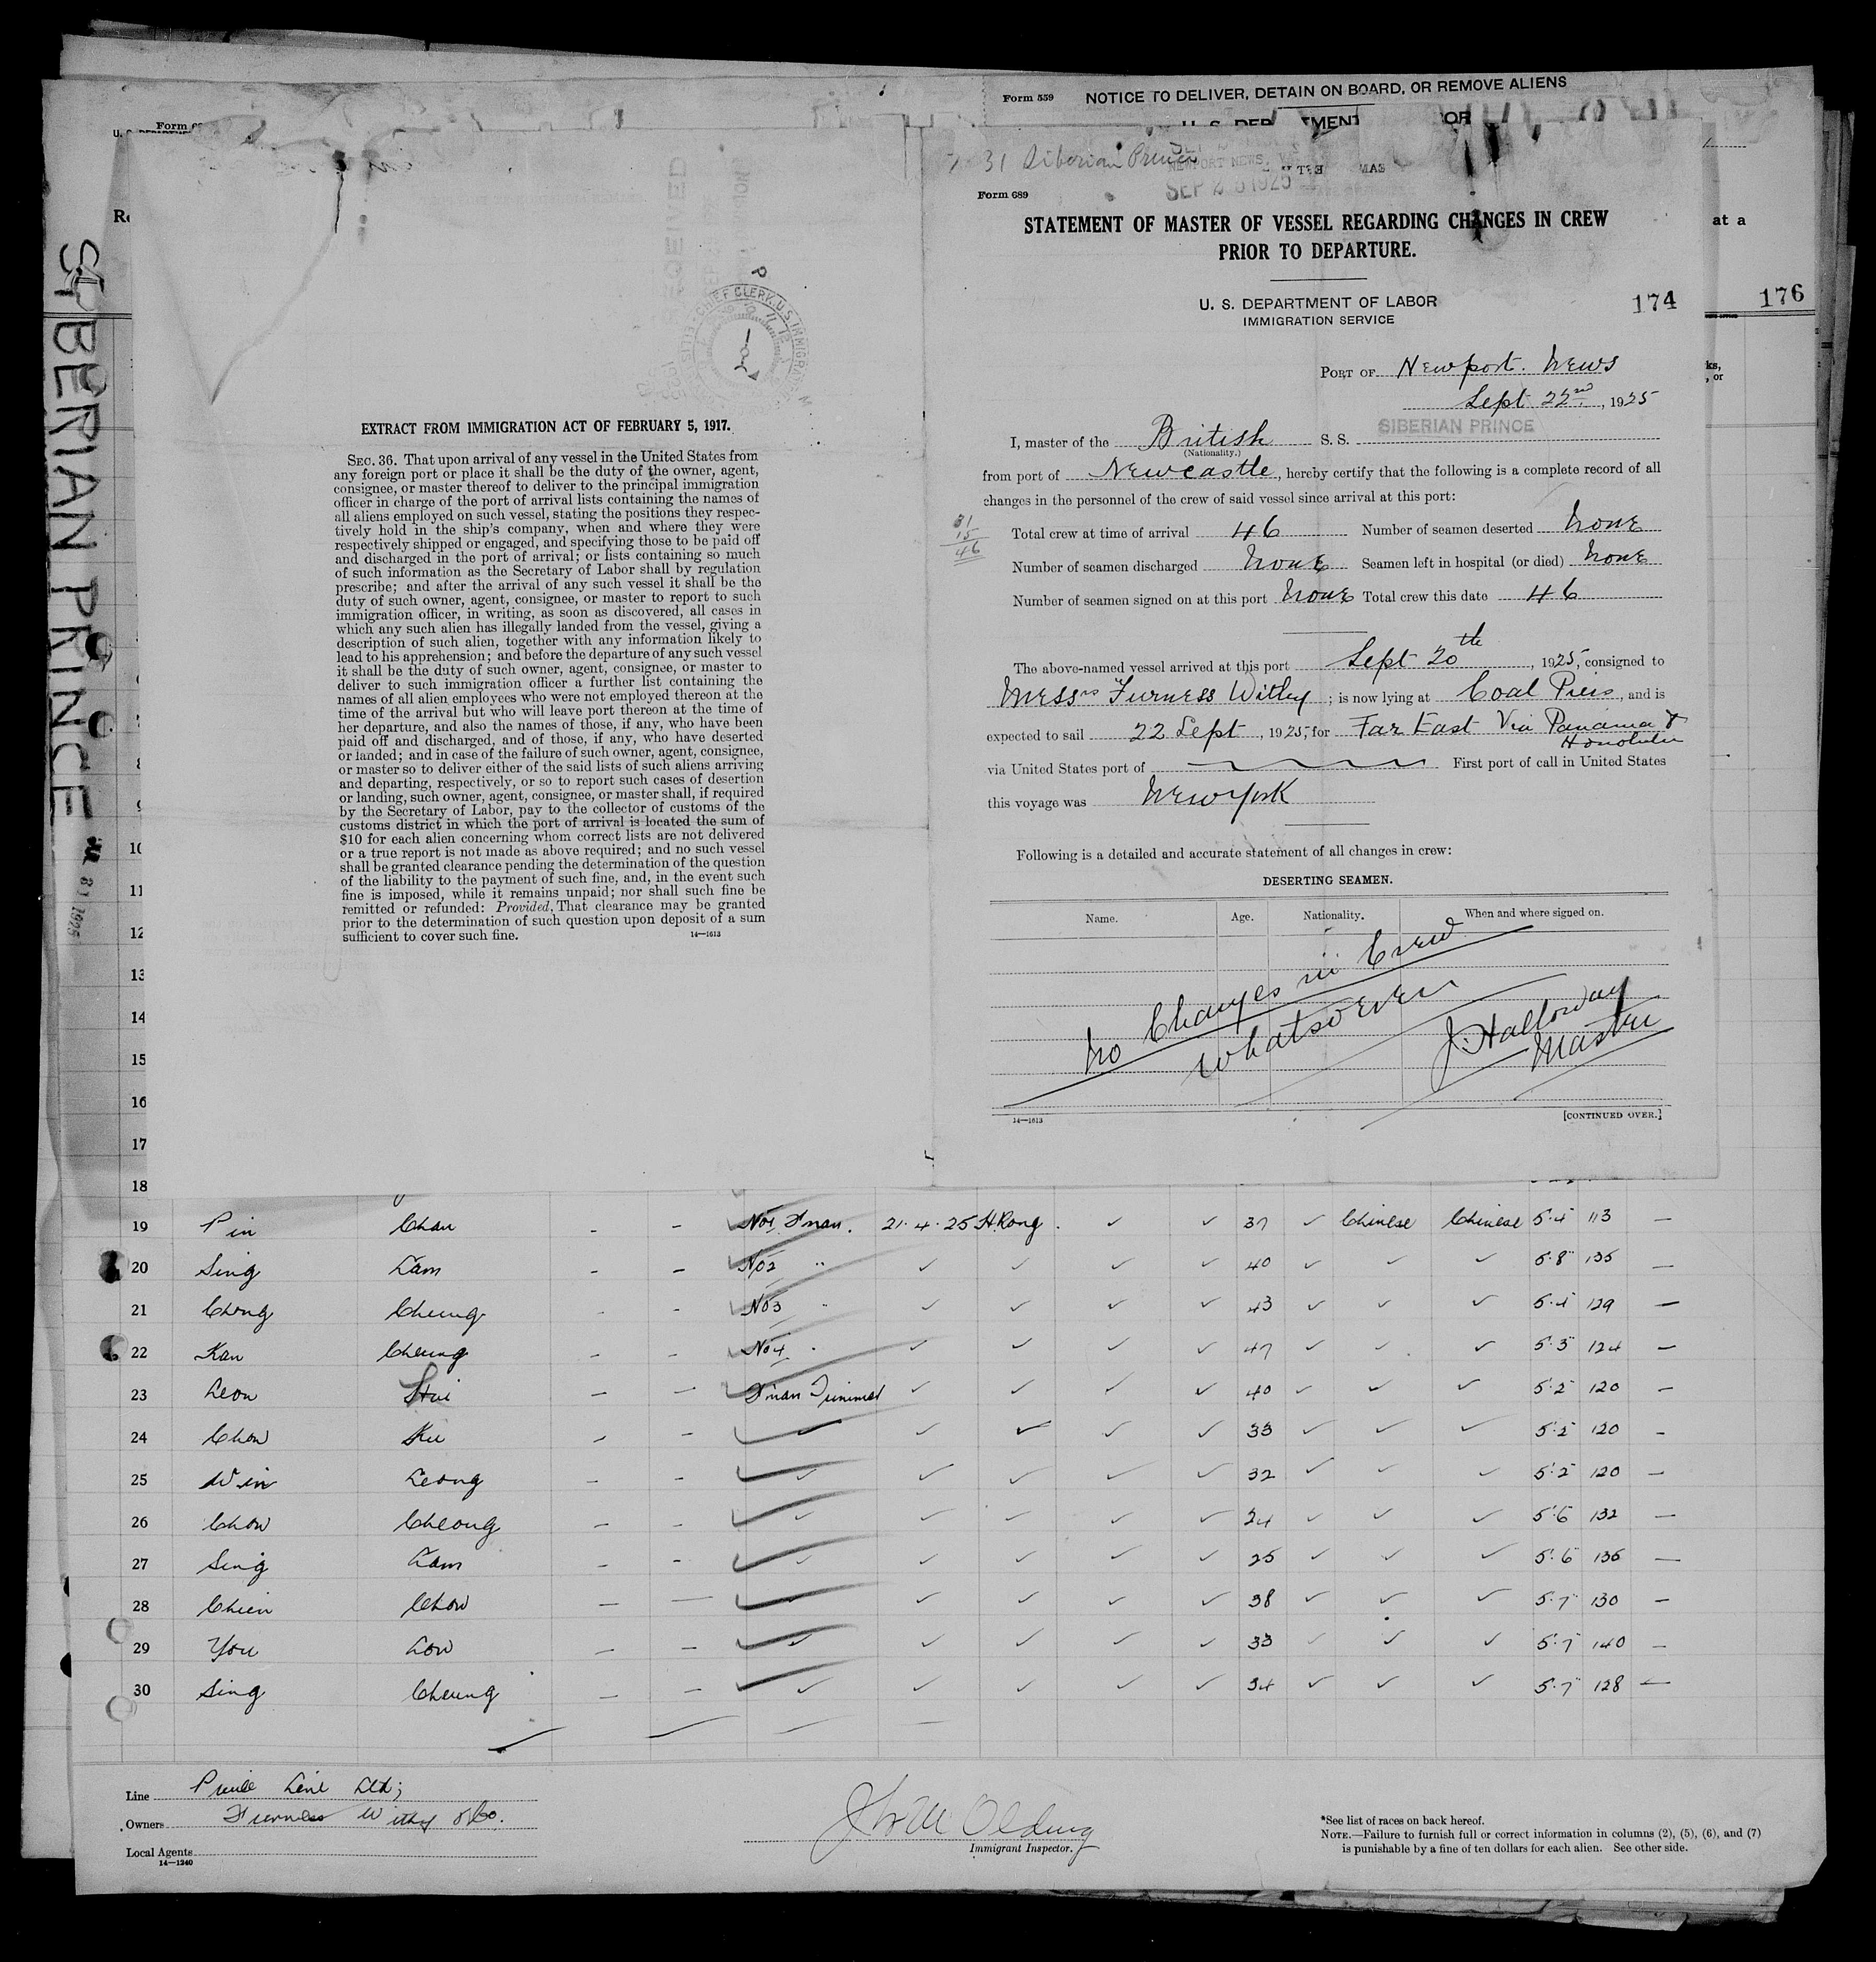 Form 559 NOTICE TO DELIVER, DETAIN ON BOARD, OR REMOVE ALIENS
SIBERIAN PRINCE
1925
at a
176
31 Siberian Prince
NEWPORT NEWS, VA
SEP 1925
Form 689
STATEMENT OF MASTER OF VESSEL REGARDING CHANGES IN CREW
PRIOR TO DEPARTURE.
U. S. DEPARTMENT OF LABOR
IMMIGRATION SERVICE
174
PORT OF Newport. News
Sept 22nd, 1925
I, master of the British S. S. SIBERIAN PRINCE
(Nationality.)
from port of Newcastle, hereby certify that the following is a complete record of all
changes in the personnel of the crew of said vessel since arrival at this port:
31
15
46
Total crew at time of arrival 46 Number of seamen deserted None
Number of seamen discharged None Seamen left in hospital (or died) None
Number of seamen signed on at this port None Total crew this date 46
The above-named vessel arrived at this port Sept 20th, 1925, consigned to
Messrs Furness Withy; is now lying at Coal Piers, and is
expected to sail 22 Sept, 1925, for Far East Via Panama &
Honolulu
via United States port of First port of call in United States
this voyage was New York
Following is a detailed and accurate statement of all changes in crew:
DESERTING SEAMEN.
Name. Age. Nationality. When and where signed on.
No Changes in Crew
whatsoever
J. Halloway
Master
14—1613 [CONTINUED OVER.]
EXTRACT FROM IMMIGRATION ACT OF FEBRUARY 5, 1917.
SEC. 36. That upon arrival of any vessel in the United States from
any foreign port or place it shall be the duty of the owner, agent,
consignee, or master thereof to deliver to the principal immigration
officer in charge of the port of arrival lists containing the names of
all aliens employed on such vessel, stating the positions they respec-
tively hold in the ship's company, when and where they were
respectively shipped or engaged, and specifying those to be paid off
and discharged in the port of arrival; or lists containing so much
of such information as the Secretary of Labor shall by regulation
prescribe; and after the arrival of any such vessel it shall be the
duty of such owner, agent, consignee, or master to report to such
immigration officer, in writing, as soon as discovered, all cases in
which any such alien has illegally landed from the vessel, giving a
description of such alien, together with any information likely to
lead to his apprehension; and before the departure of any such vessel
it shall be the duty of such owner, agent, consignee, or master to
deliver to such immigration officer a further list containing the
names of all alien employees who were not employed thereon at the
time of the arrival but who will leave port thereon at the time of
her departure, and also the names of those, if any, who have been
paid off and discharged, and of those, if any, who have deserted
or landed; and in case of the failure of such owner, agent, consignee,
or master so to deliver either of the said lists of such aliens arriving
and departing, respectively, or so to report such cases of desertion
or landing, such owner, agent, consignee, or master shall, if required
by the Secretary of Labor, pay to the collector of customs of the
customs district in which the port of arrival is located the sum of
$10 for each alien concerning whom correct lists are not delivered
or a true report is not made as above required; and no such vessel
shall be granted clearance pending the determination of the question
of the liability to the payment of such fine, and, in the event such
fine is imposed, while it remains unpaid; nor shall such fine be
remitted or refunded: Provided, That clearance may be granted
prior to the determination of such question upon deposit of a sum
sufficient to cover such fine. 14—1613
11
12
13
14
15
16
17
18
19 Pin Chan - - No1 F'man. 21.4.25 H.Kong. ✓ ✓ 37 ✓ Chinese Chinese 5.4 113 —
20 Sing Lam - - No2 " ✓ ✓ ✓ ✓ 40 ✓ ✓ ✓ 5.8 135 —
21 Chong Cheung - - No3 " ✓ ✓ ✓ ✓ 43 ✓ ✓ ✓ 5.4 129 —
22 Kan Cheung - - No4 " ✓ ✓ ✓ ✓ 47 ✓ ✓ ✓ 5.3 124 —
23 Leon Hui - - F'man Trimmer ✓ ✓ ✓ ✓ 40 ✓ ✓ ✓ 5.2 120 —
24 Chow Ku - - ✓ ✓ ✓ ✓ ✓ 33 ✓ ✓ ✓ 5.2 120 —
25 Win Leong - - ✓ ✓ ✓ ✓ ✓ 32 ✓ ✓ ✓ 5.2 120 —
26 Chow Cheong - - ✓ ✓ ✓ ✓ ✓ 24 ✓ ✓ ✓ 5.6 132 —
27 Sing Lam - - ✓ ✓ ✓ ✓ ✓ 25 ✓ ✓ ✓ 5.6 136 —
28 Chien Chow - - ✓ ✓ ✓ ✓ ✓ 38 ✓ ✓ ✓ 5.7 130 —
29 You Low - - ✓ ✓ ✓ ✓ ✓ 33 ✓ ✓ ✓ 5.7 140 —
30 Sing Cheung - - ✓ ✓ ✓ ✓ ✓ 34 ✓ ✓ ✓ 5.7 128 —
Line Prince Line Ltd;
Owners Furness Withy & Co.
Local Agents
14—1240
Immigrant Inspector.
*See list of races on back hereof.
NOTE.—Failure to furnish full or correct information in columns (2), (5), (6), and (7)
is punishable by a fine of ten dollars for each alien. See other side.